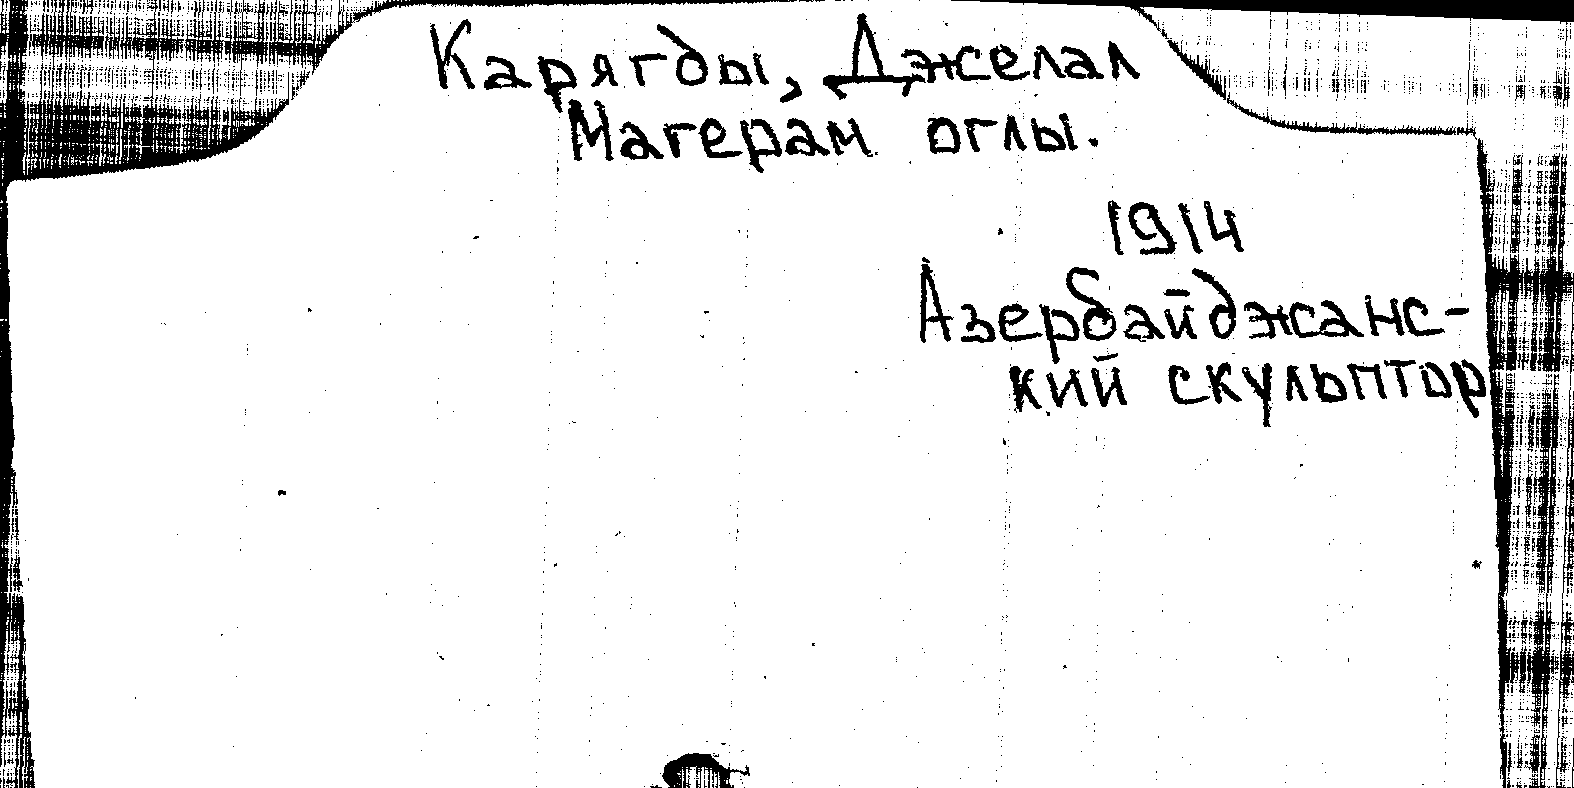 Карягды, Джелал
Магерам оглы.
1914
Азербайджанс-
кий скульптор